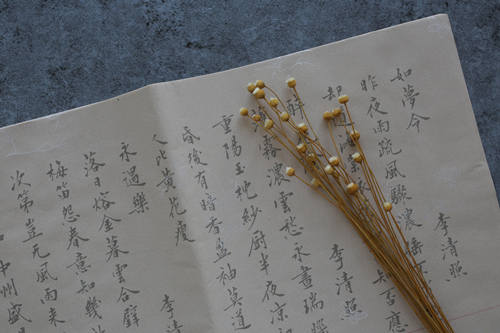 如夢令
李清照
昨夜雨疏風驟濃睡
知否應
醉
李清照
霧濃雲愁永晝瑞
重陽玉枕紗廚半夜涼
昏後有暗香盈袖莫道
人比黃花瘦
永遇樂
李清
落日熔金暮雲合璧
梅笛怨春意知幾
次第豈无風雨来
中州盛